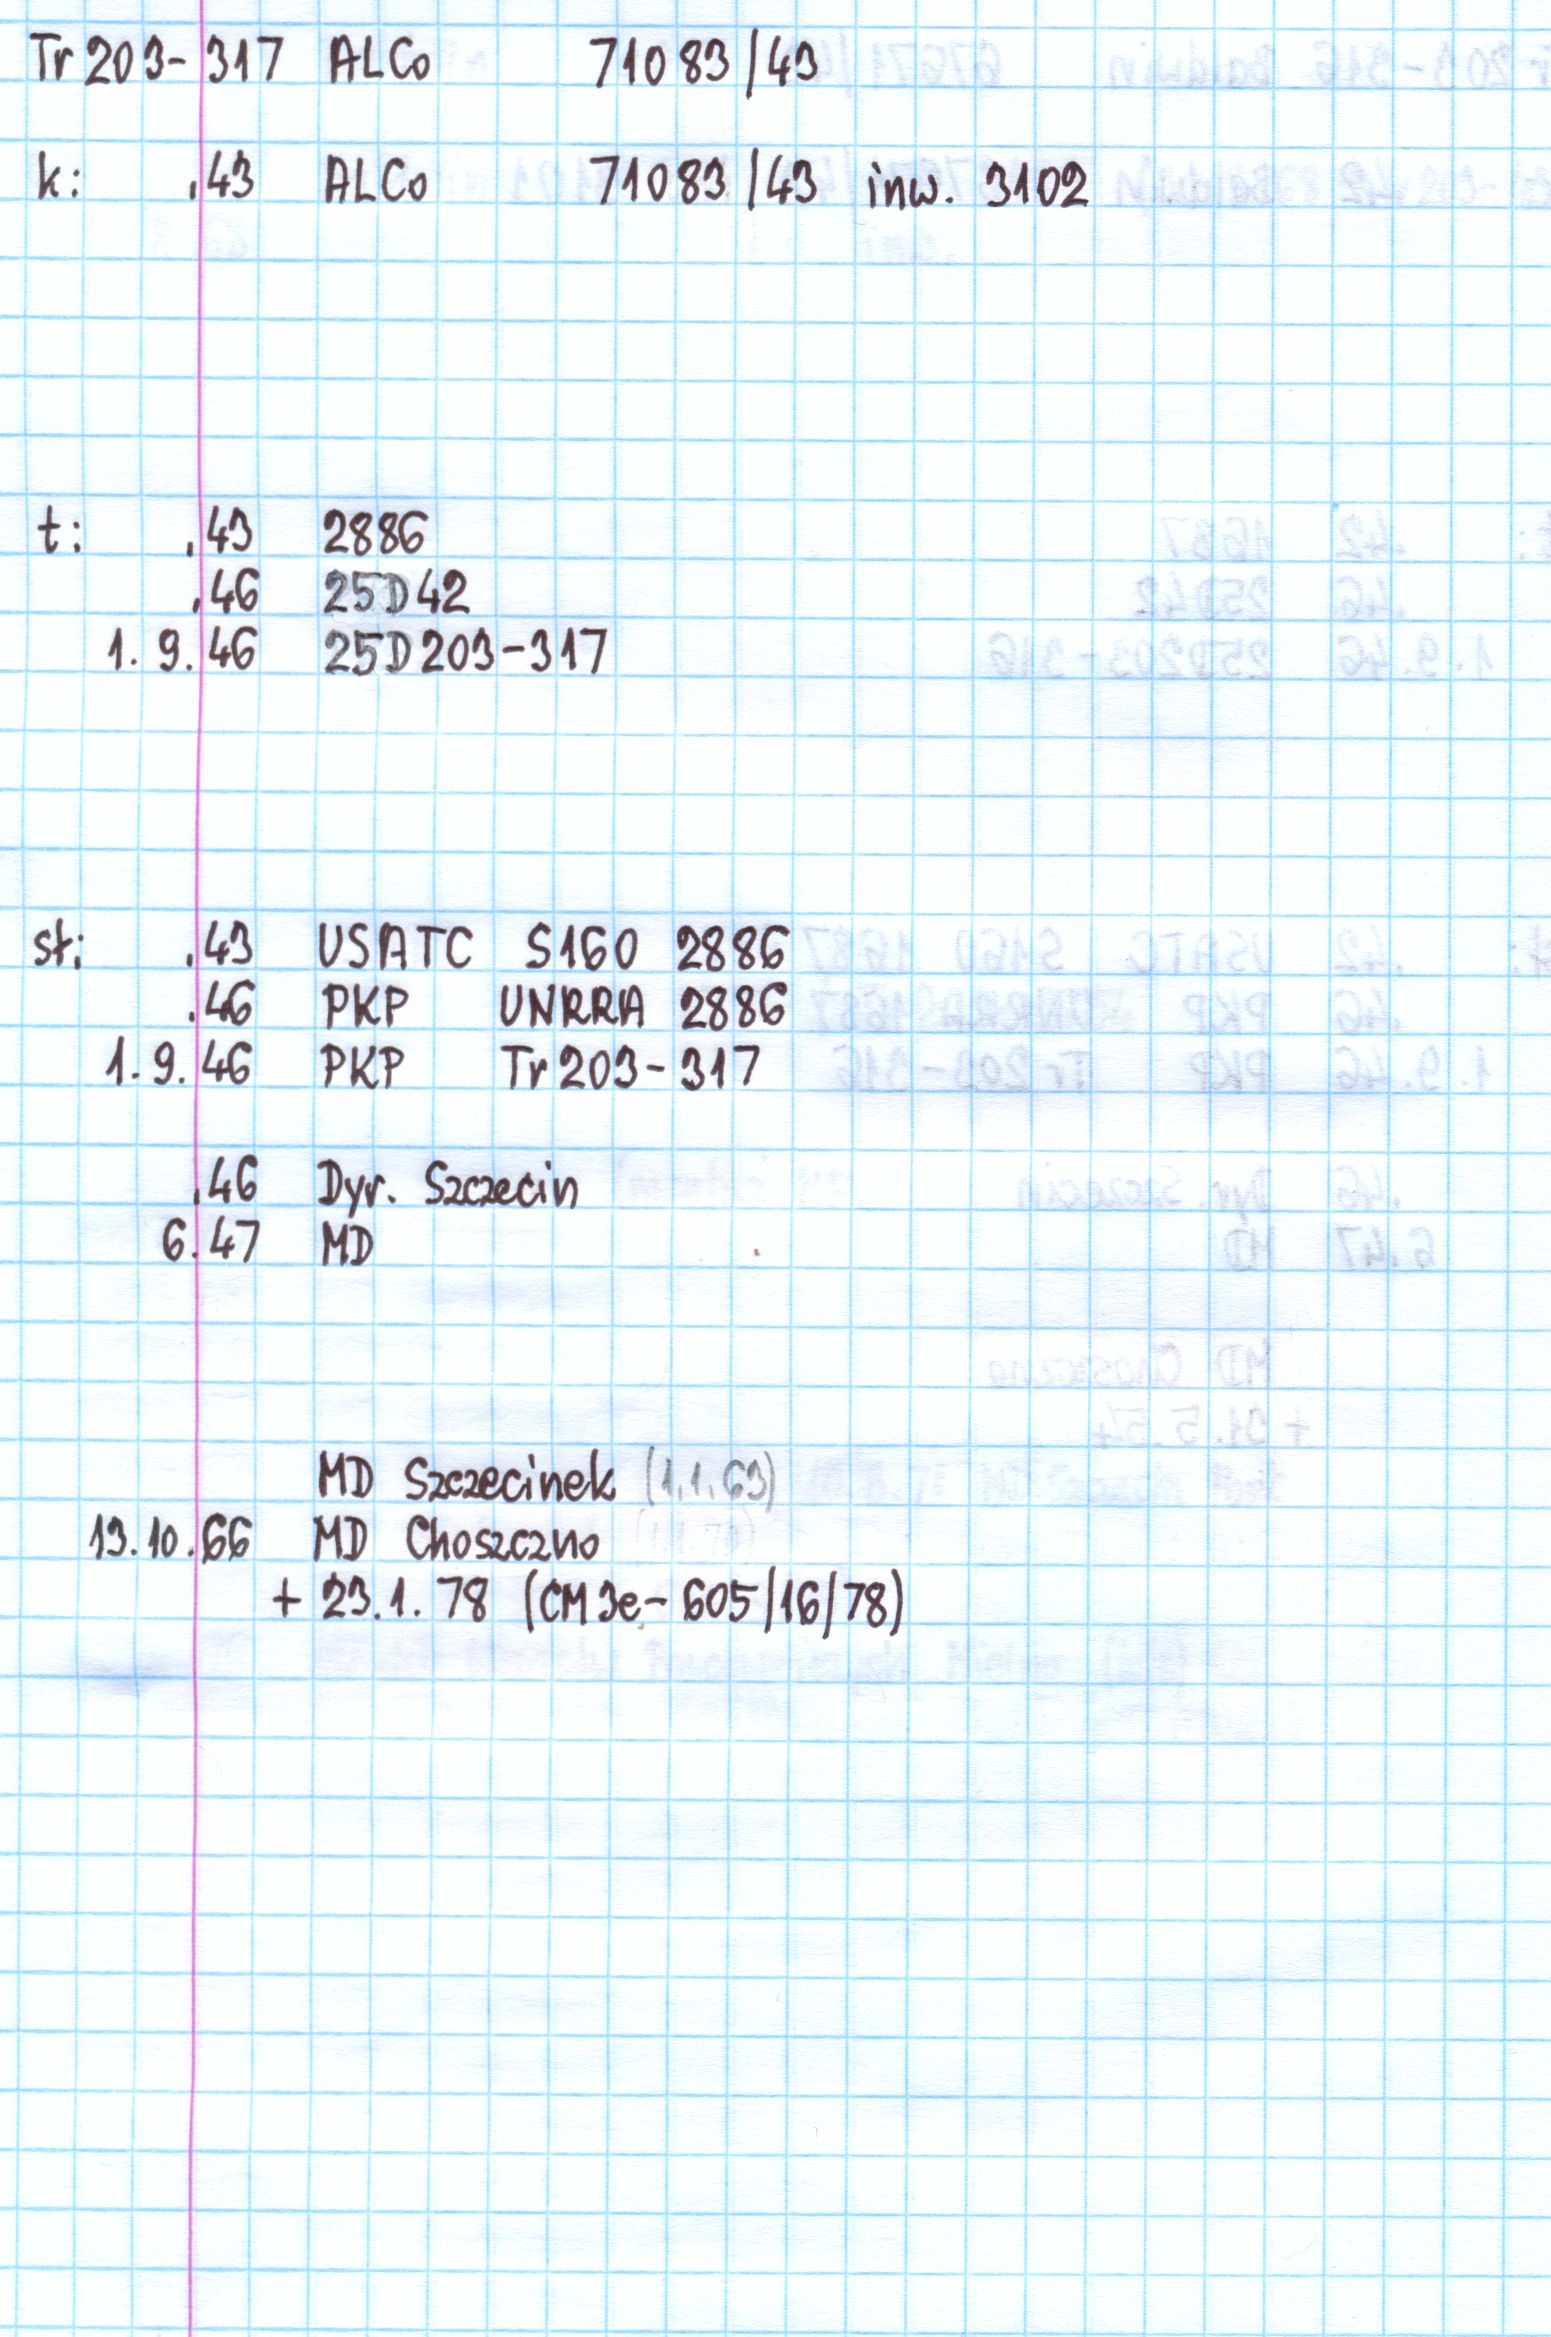 Tr 203-317 ALCo 71083/43
k: .43 ALCo 71083/43 inw. 3102
t: .43 2886
.46 25D42
1.9.46 25D203-317
st: .43 USATC S160 2886
.46 PKP UNRRA 2886
1.9.46 PKP Tr203-317
.46 Dyr. Szczecin
6.47 MD
MD Szczecinek (1.1.63)
13.10.66 MD Choszczno
+ 23.1.78 (CM3e-605/16/78)